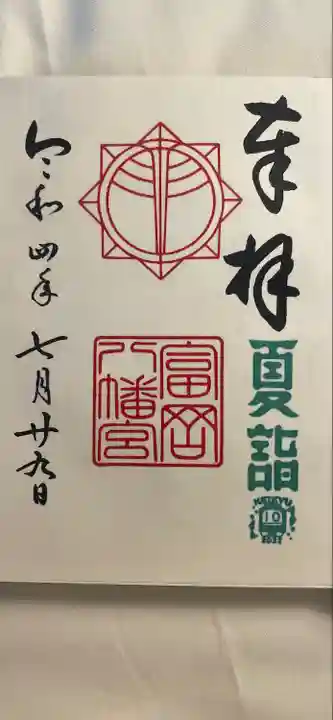 奉拝
夏詣
KEIKYU
10
富岡
八幡宮
令和四年七月廿九日